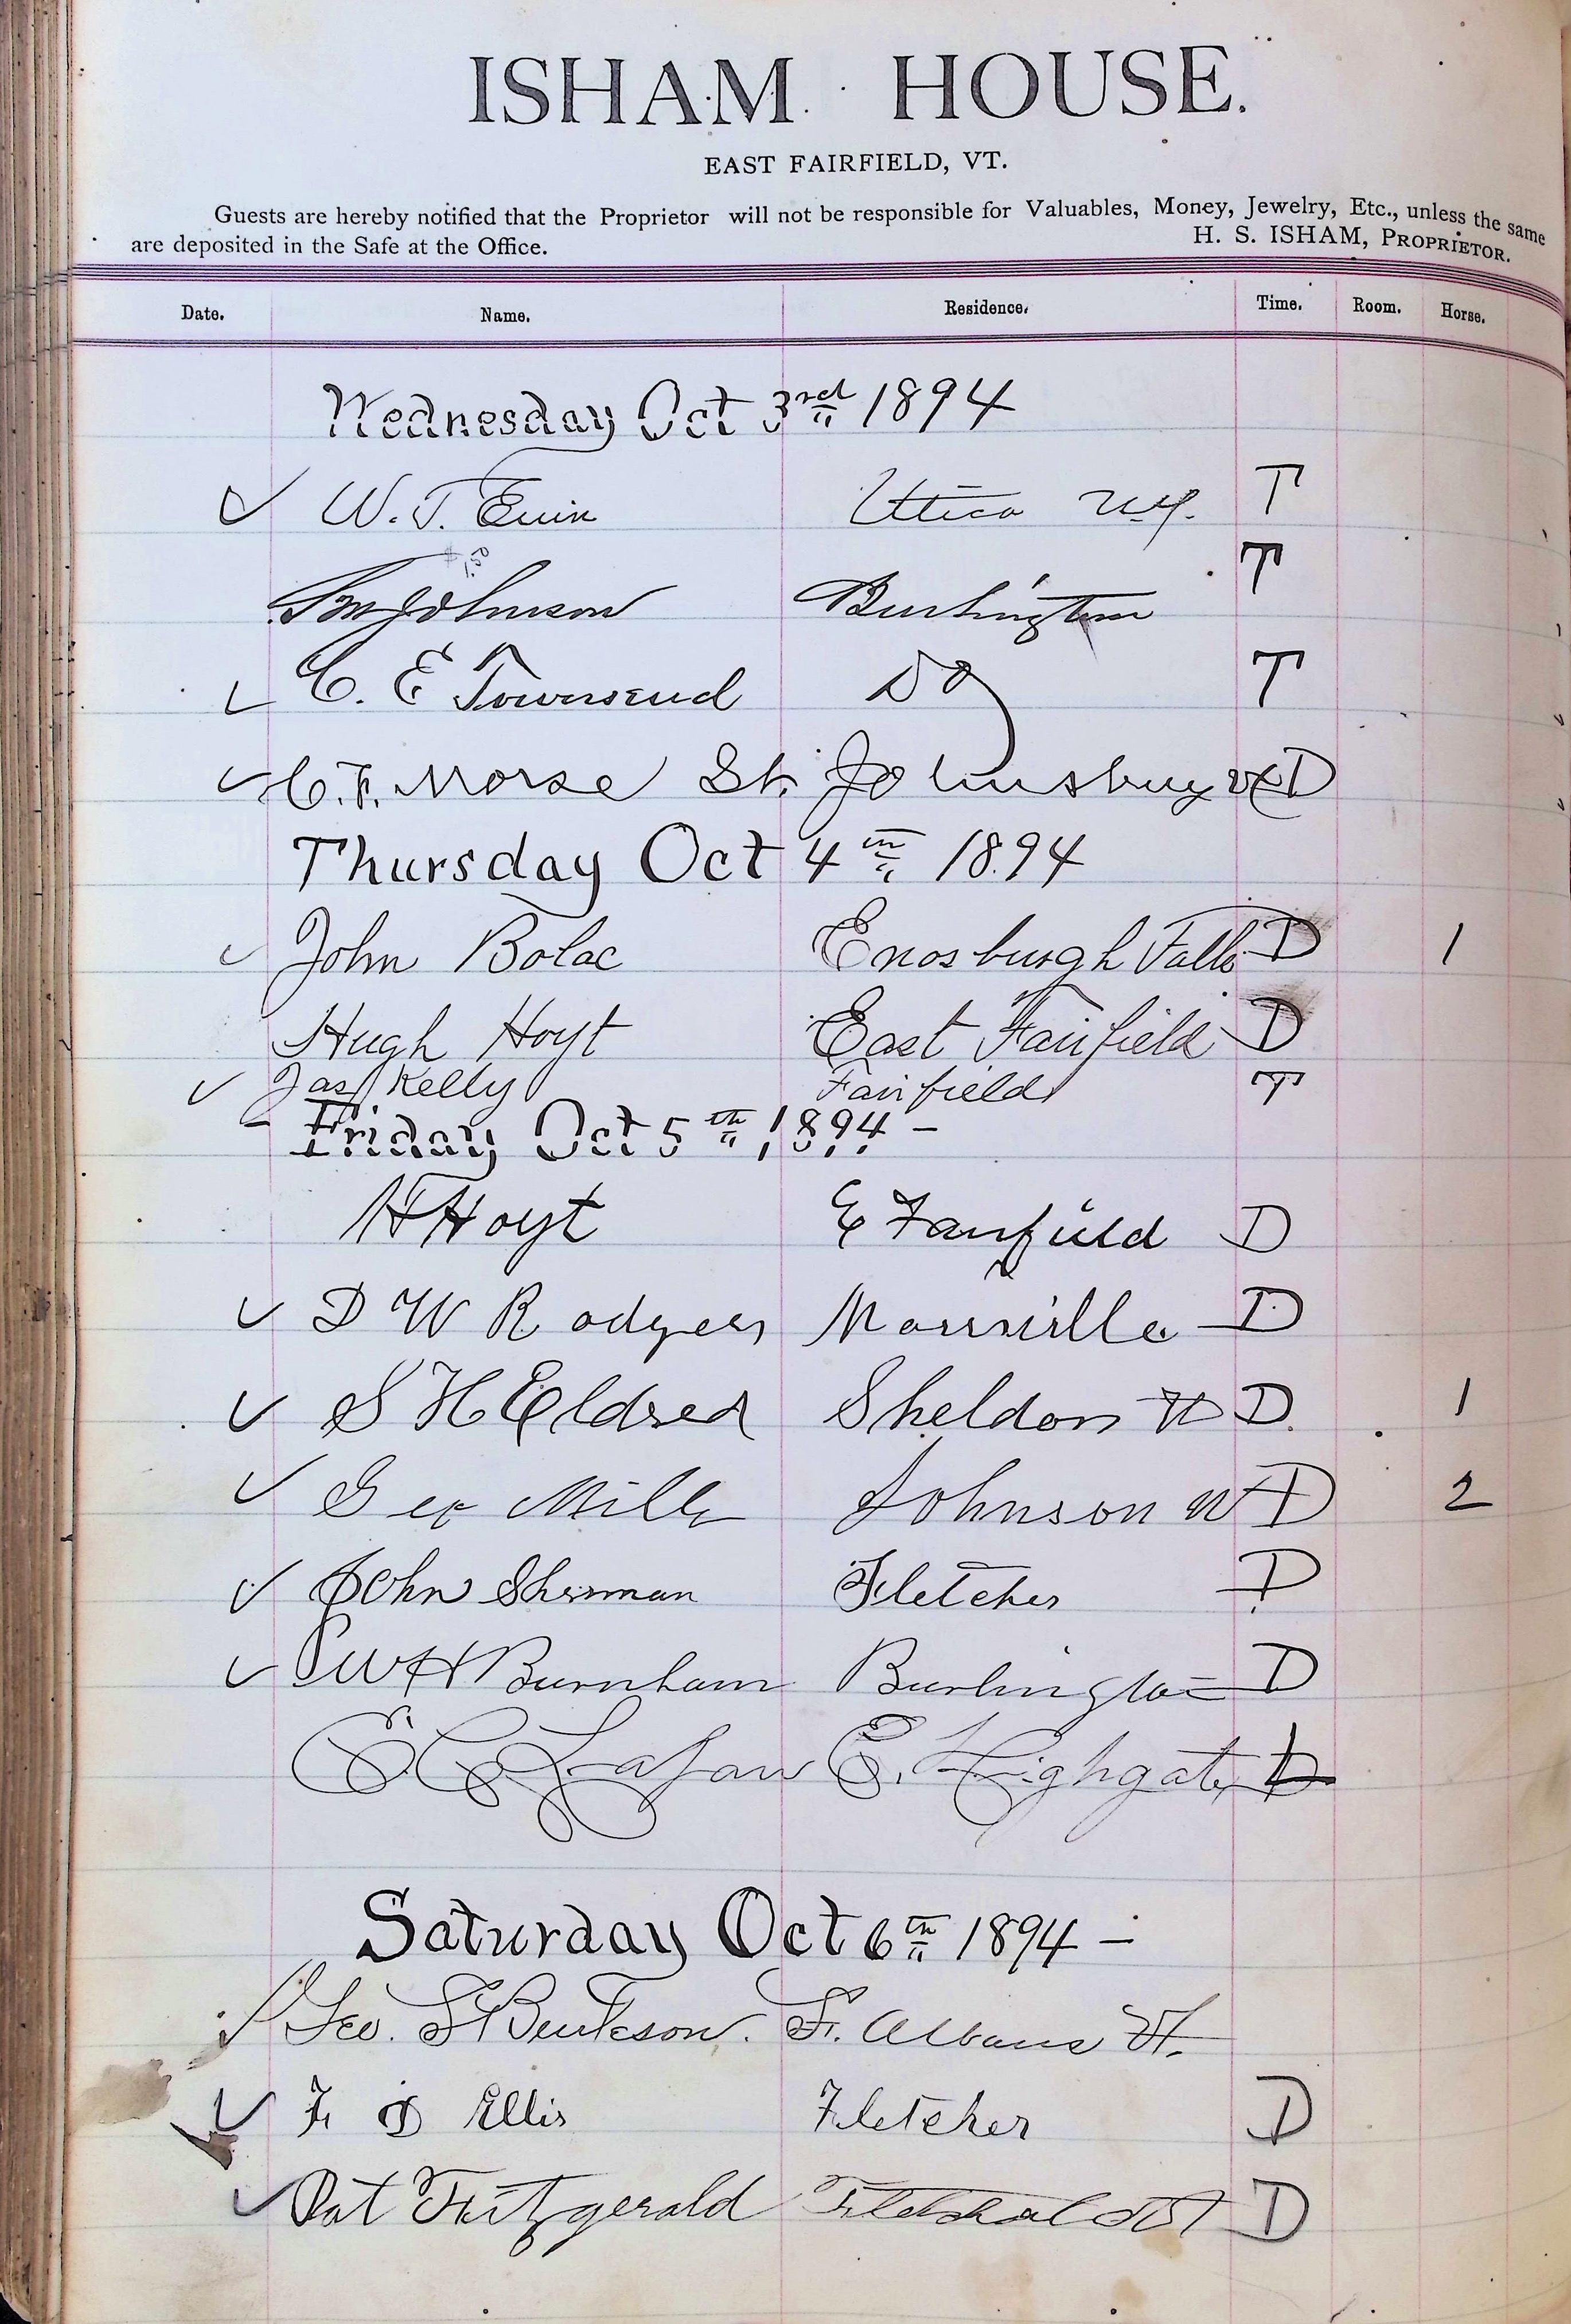 ISHAM HOUSE.
EAST FAIRFIELD, VT.
Guests are hereby notified that the Proprietor will not be responsible for Valuables, Money, Jewelry, Etc., unless the same
are deposited in the Safe at the Office. H. S. ISHAM, PROPRIETOR.
Date. Name. Residence. Time. Room. Horse.
Wednesday Oct 3rd 1894
W. T. Utica N.Y. T
Johnson Burlington T
C. E Townsend Do T
C. F. Morse St. Johnsbury Vt D
Thursday Oct 4th 1894
John Bolac Enosburgh Falls D 1
Hugh Hoyt East Fairfield D
Jas Kelly Fairfield T
Friday Oct 5th 1894 -
H Hoyt E Fairfield D
D W Rodgers Morrisville D
S H Eldred Sheldon Vt D 1
Geo Mills Johnson Vt D 2
John Sherman Fletcher D
W H Burnham Burlington D
E C Lafaw E. Highgate D
Saturday Oct 6th 1894 -
Geo. St. Albans Vt.
F D Ellis Fletcher D
Pat Fitzgerald D